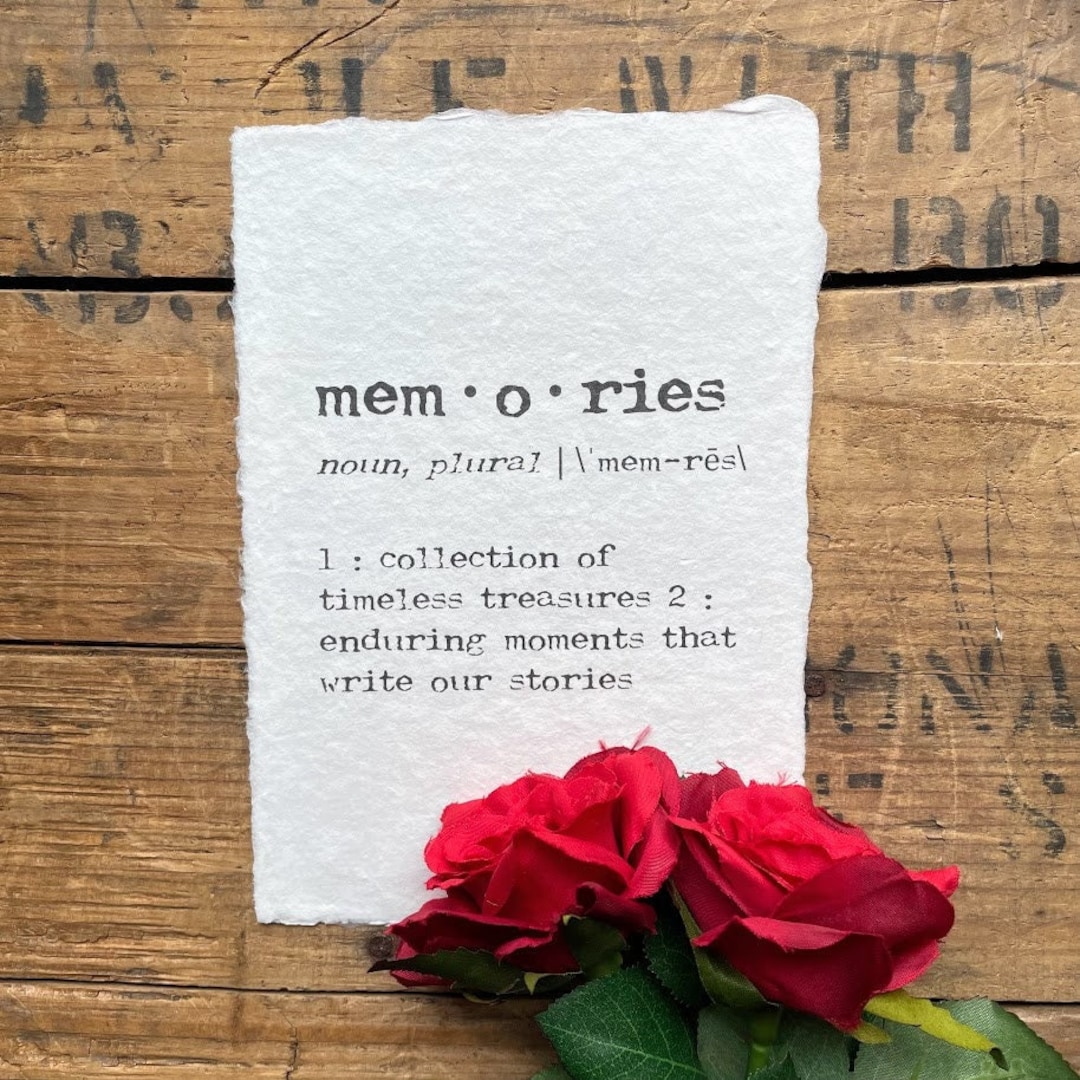 WITH
BO
mem·o·ries
noun, plural |\ˈmem-rēs\
1 : collection of
timeless treasures 2 :
enduring moments that
write our stories